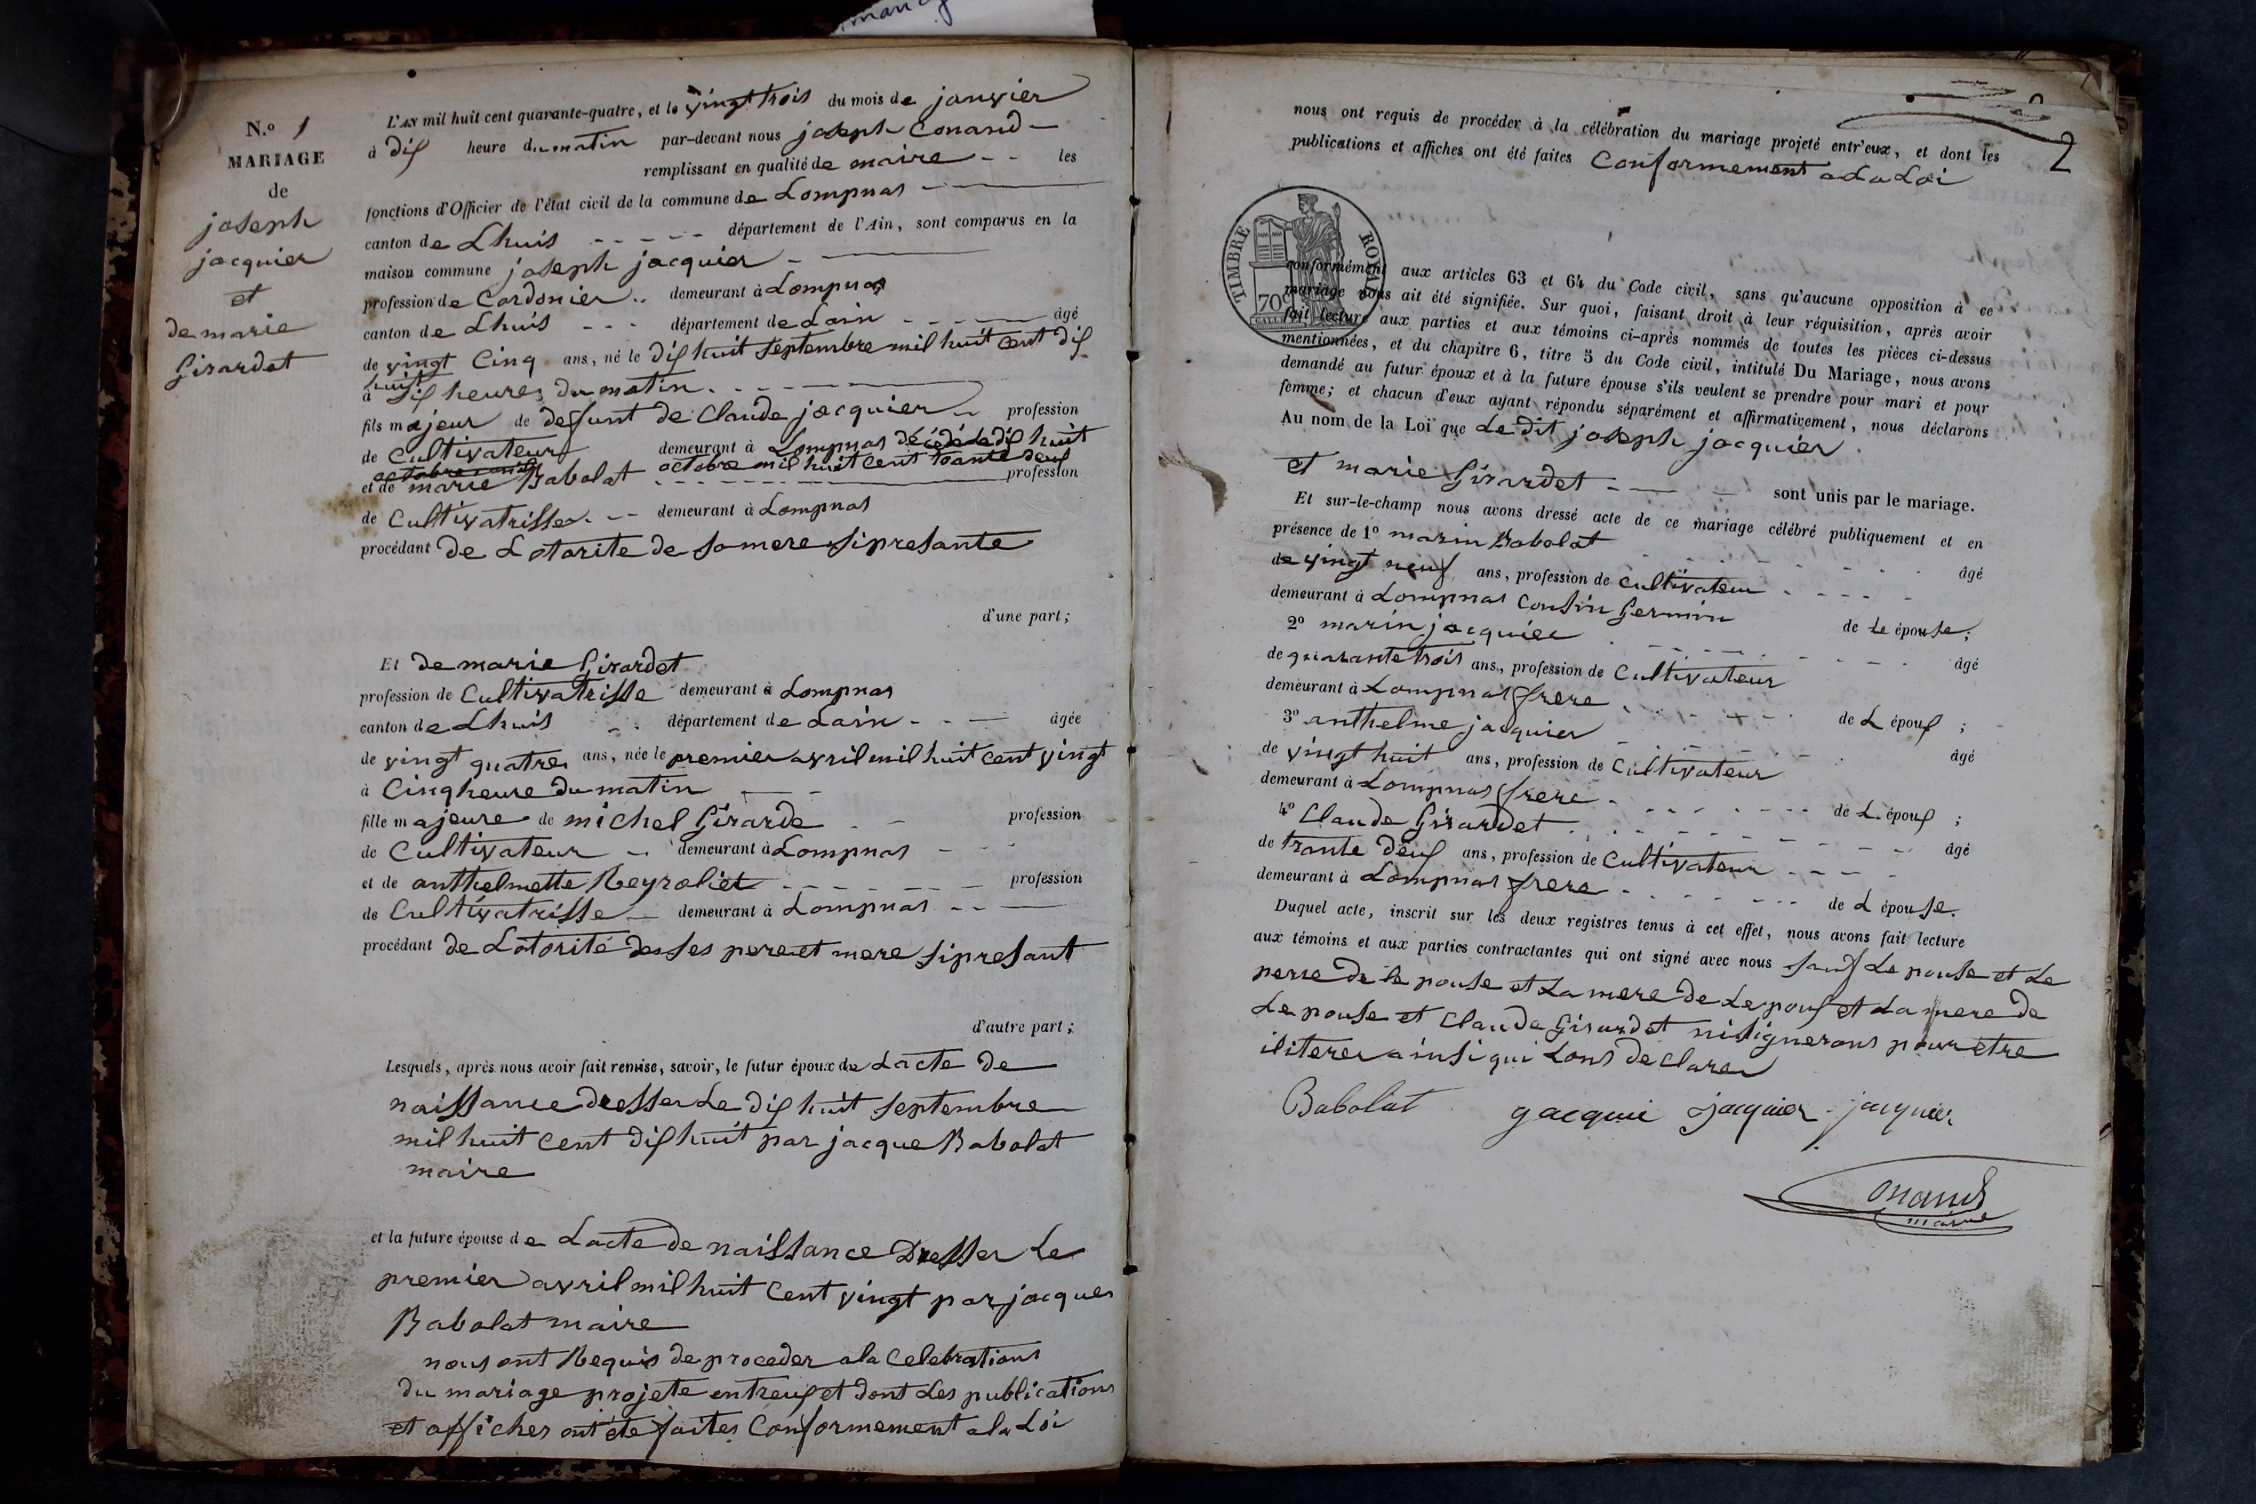 N.º 1
MARIAGE
de
joseph
jacquier
et
de marie
Girardet
L'AN mil huit cent quarante-quatre, et le vingt trois du mois de janvier
à dix heure du matin par-devant nous joseph Conand
remplissant en qualité de maire les
fonctions d'Officier de l'état civil de la commune de Lompnas
canton de Lhuis département de l'Ain, sont comparus en la
maison commune joseph jacquier
profession de Cordonier demeurant à Lompnas
canton de Lhuis département de Lain âgé
de vingt Cinq ans, né le dix huit septembre mil huit cent dix
huit
à dix heures du matin
fils majeur de defunt de Claude jacquier profession
de Cultivateur demeurant à Lompnas décédé le dix huit
octobre mil huit cent trante deux
et de marie Babolat profession
de Cultivatrisse demeurant à Lompnas
procédant de Lotorite de so mere si presante
d'une part;
Et de marie Girardet
profession de Cultivatrisse demeurant à Lompnas
canton de Lhuis département de Lain âgée
de vingt quatre ans, née le premier avril mil huit cent vingt
à Cinq heure du matin
fille majeure de michel Girarde profession
de Cultivateur demeurant à Lompnas
et de anthelmette Reyroliet profession
de Cultivatrisse demeurant à Lompnas
procédant de Lotorité des ses pere et mere si presant
d'autre part;
Lesquels, après nous avoir fait remise, savoir, le futur époux de Lacte de
naissance dresser Le dix huit septembre
mil huit cent dix huit par jacque Babolat
maire
et la future épouse de Lacte de naissance Dresser Le
premier avril mil huit cent vingt par jacques
Babolat maire
nous ont Requis de proceder a la Celebrations
du mariage projete entreux et dont Les publications
et affiches ont été faites Conformement a la Loi
2
nous ont requis de procéder à la célébration du mariage projeté entr'eux, et dont les
publications et affiches ont été faites Conformement a La Loi
TIMBRE ROYAL
70c
conformément aux articles 63 et 64 du Code civil, sans qu'aucune opposition à ce
mariage nous ait été signifiée. Sur quoi, faisant droit à leur réquisition, après avoir
fait lecture aux parties et aux témoins ci-après nommés de toutes les pièces ci-dessus
mentionnées, et du chapitre 6, titre 5 du Code civil, intitulé Du Mariage, nous avons
demandé au futur époux et à la future épouse s'ils veulent se prendre pour mari et pour
femme; et chacun d'eux ayant répondu séparément et affirmativement, nous déclarons
Au nom de la Loi que Le dit joseph jacquier
et marie Girardet sont unis par le mariage.
Et sur-le-champ nous avons dressé acte de ce mariage célébré publiquement et en
présence de 1º marin Babolat âgé
de vingt neuf ans, profession de cultivateur
demeurant à Lompnas Cousin Germin de Le épouse;
2º marin jacquier âgé
de quarante trois ans, profession de Cultivateur
demeurant à Lompnas frere de L époux;
3º anthelme jacquier âgé
de vingt huit ans, profession de Cultivateur
demeurant à Lompnas frere de L époux;
4º Claude Girardet âgé
de trante deux ans, profession de Cultivateur
demeurant à Lompnas frere de L épouse.
Duquel acte, inscrit sur les deux registres tenus à cet effet, nous avons fait lecture
aux témoins et aux parties contractantes qui ont signé avec nous sauf Le pouse et Le
perre de Le pouse et La mere de Le poux et La mere de
Le pouse et Claude Girardet ni signerons pour être
iliterer ainsi qui Lons declarer
Babolat gacquie Jacquier jacquier
Conand
maire